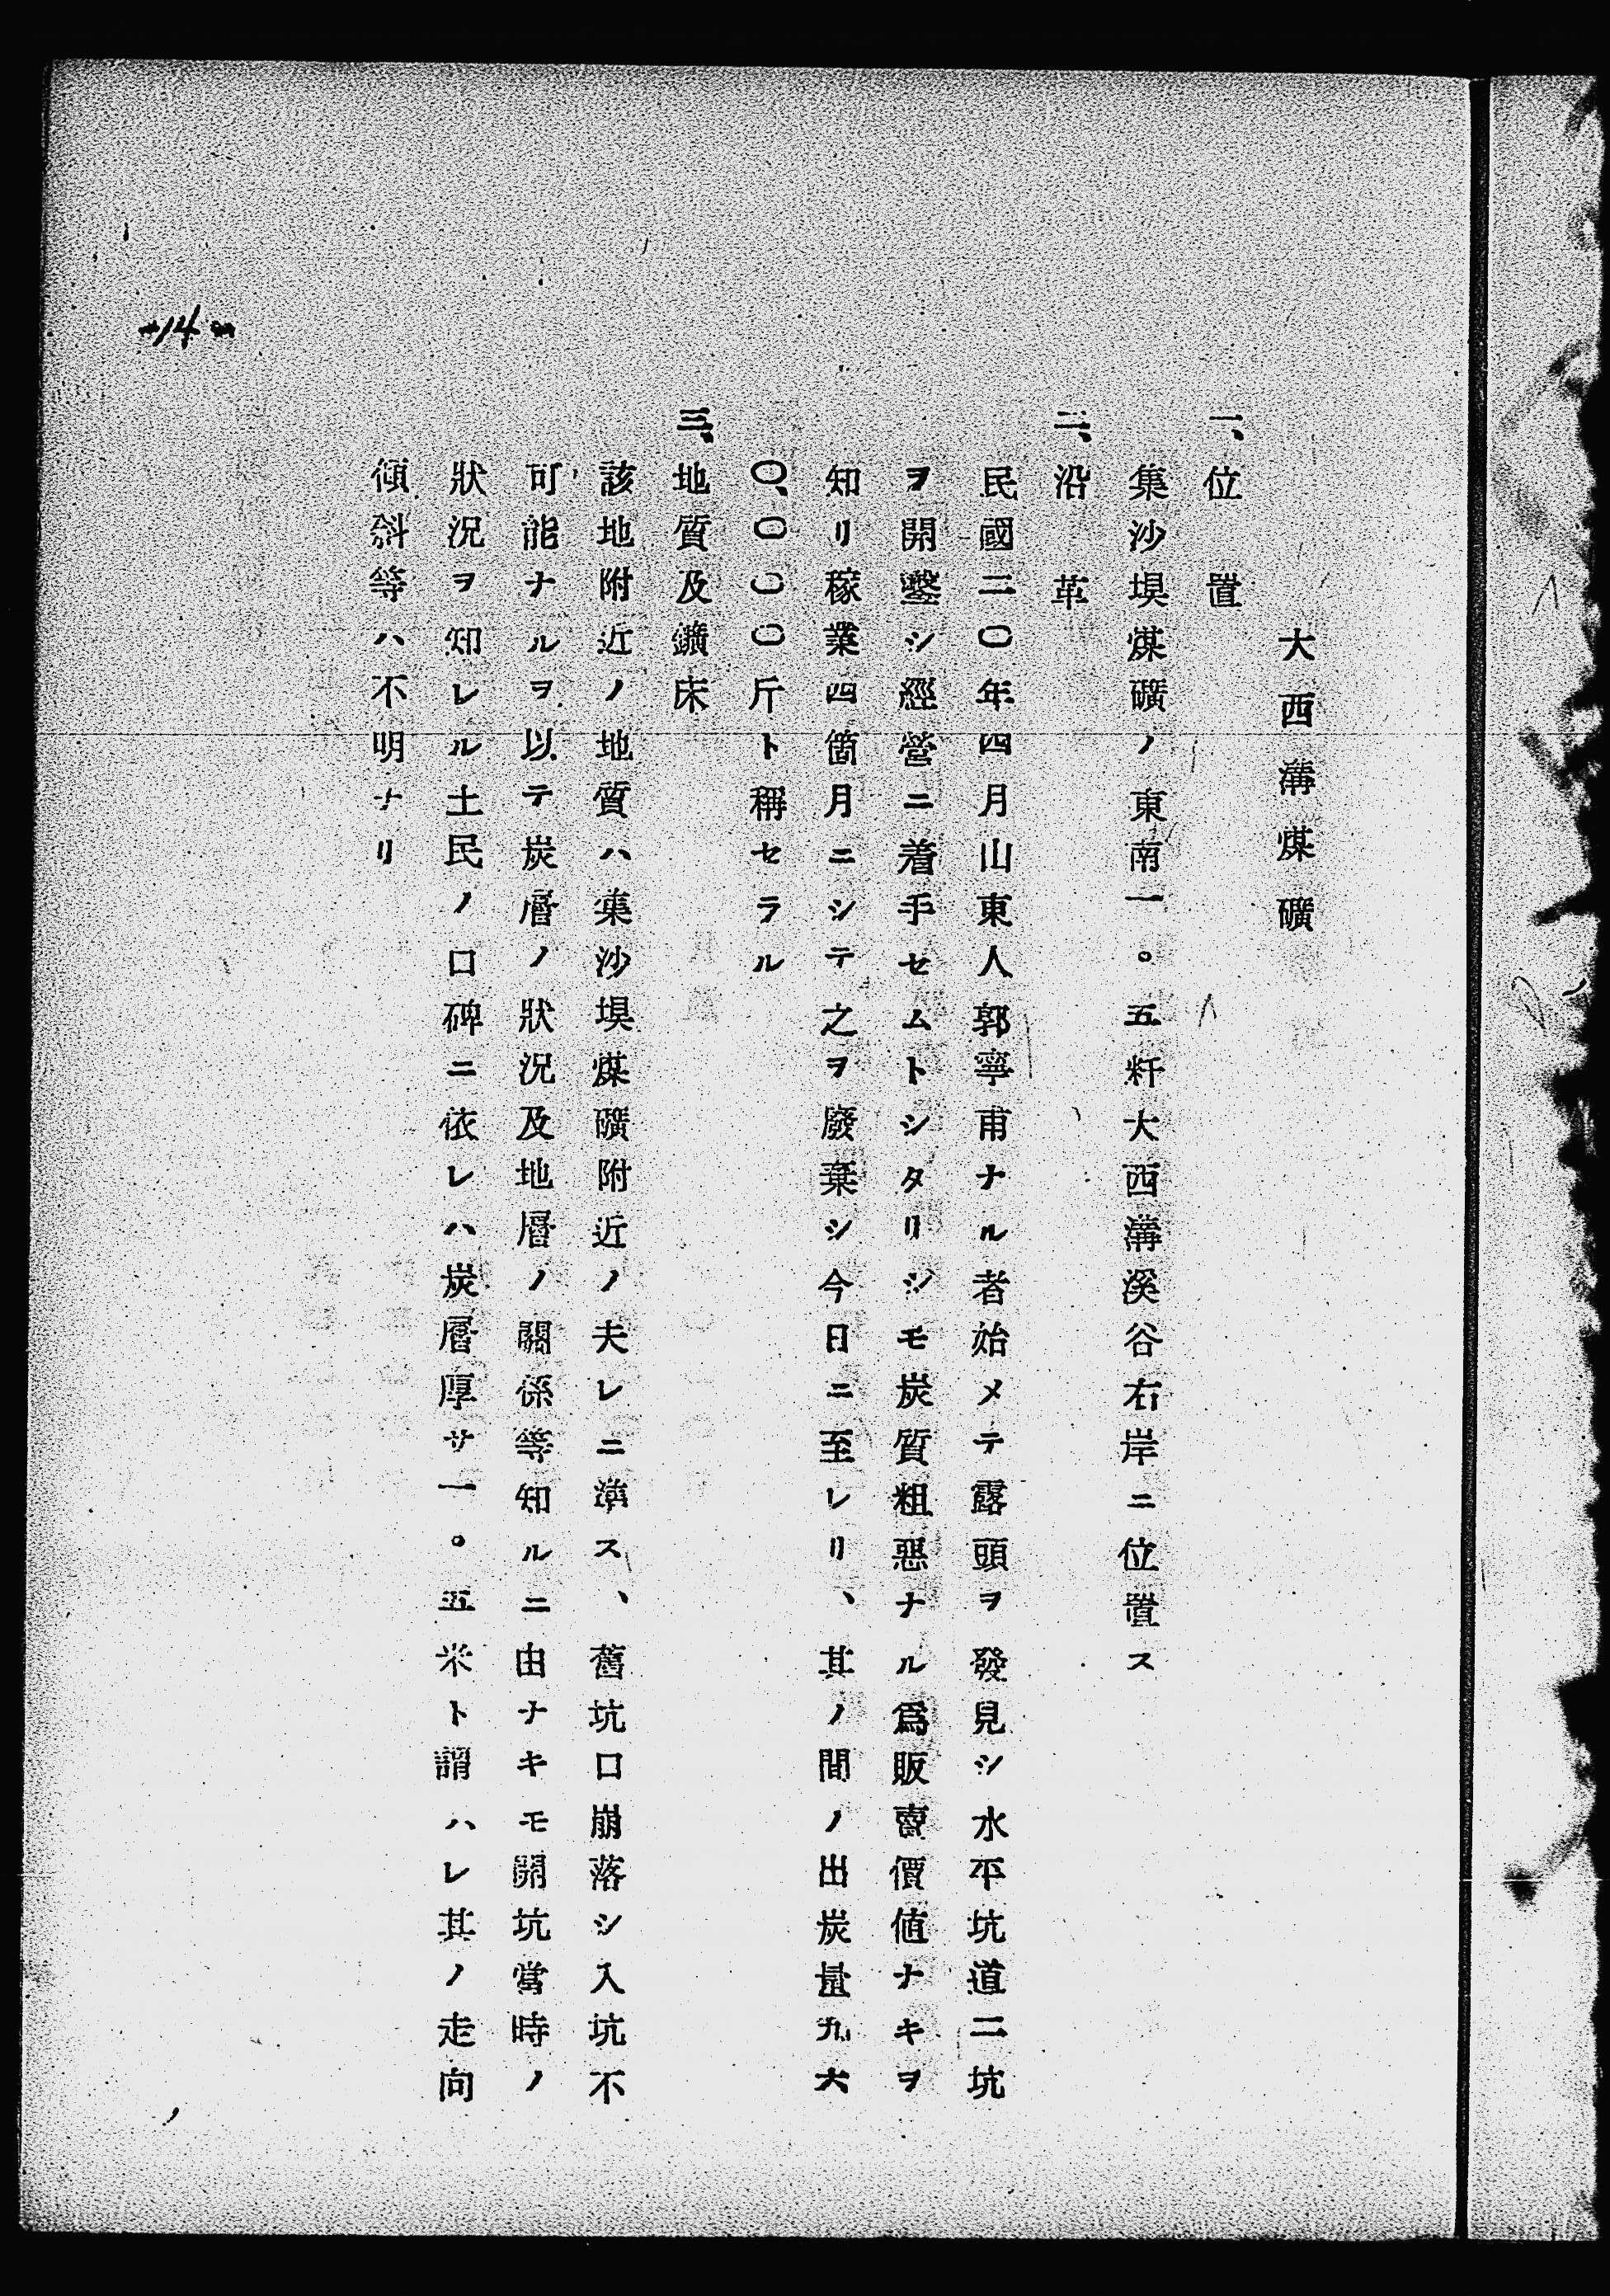 大西溝煤礦
一、位置
集沙垻煤礦ノ東南一。五粁大西溝溪谷右岸ニ位置ス
二、沿革
民國二〇年四月山東人郭寧甫ナル者始メテ露頭ヲ發見シ水平坑道二坑
ヲ開鑿シ經營ニ着手セムトシタリシモ炭質粗惡ナル爲販賣價値ナキヲ
知リ稼業四箇月ニシテ之ヲ廢棄シ今日ニ至レリ、其ノ間ノ出炭量九六
〇、〇〇〇斤ト稱セラル
三、地質及鑛床
該地附近ノ地質ハ集沙垻煤礦附近ノ夫レニ準ス、舊坑口崩落シ入坑不
可能ナルヲ以テ炭層ノ狀況及地層ノ關係等知ルニ由ナキモ開坑當時ノ
狀況ヲ知レル土民ノ口碑ニ依レハ炭層厚サ一。五米ト謂ハレ其ノ走向
傾斜等ハ不明ナリ
-14-